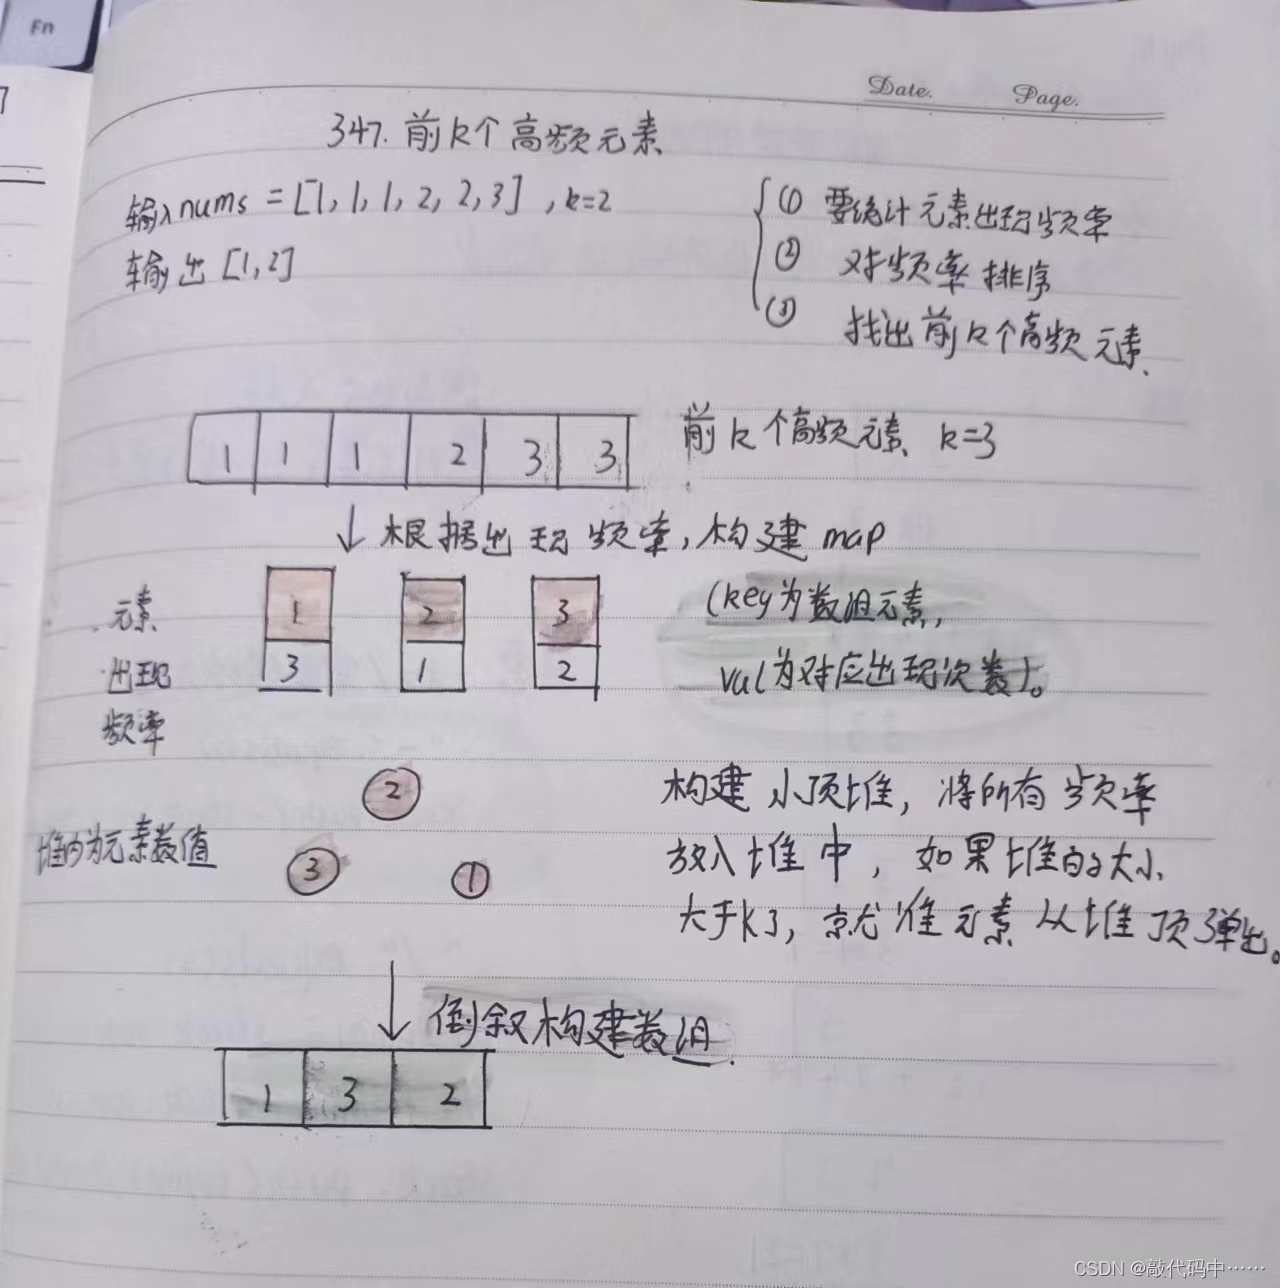 Fn
Date.
Page.
347. 前k个高频元素
输入nums = [1, 1, 1, 2, 2, 3] , k=2
输出 [1, 2]
① 要统计元素出现频率
② 对频率排序
③ 找出前k个高频元素
1 1 1 2 3 3
前k个高频元素 k=3
根据出现频率, 构建 map
元素
1 2 3
出现
频率
3 1 2
(key为数组元素,
val为对应出现次数)。
2
3 1
堆内为元素数值
构建小顶堆, 将所有频率
放入堆中, 如果堆的大小
大于k了, 就堆元素从堆顶弹出。
倒叙构建数组.
1 3 2
CSDN @敲代码中……